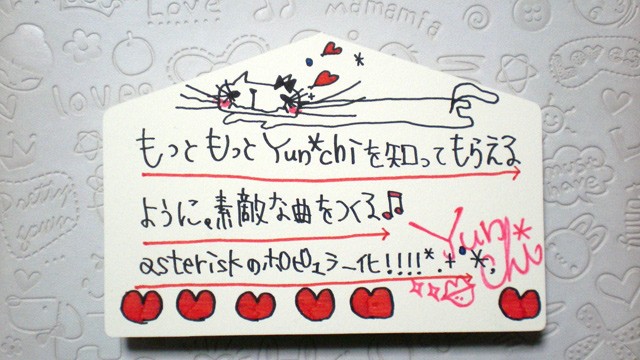 mamamia
loves
もっともっとYun*chiを知ってもらえる
ように。素敵な曲をつくる♫
asteriskのポピュラー化!!!!*.+*.
Yun*chi
Pretty
love